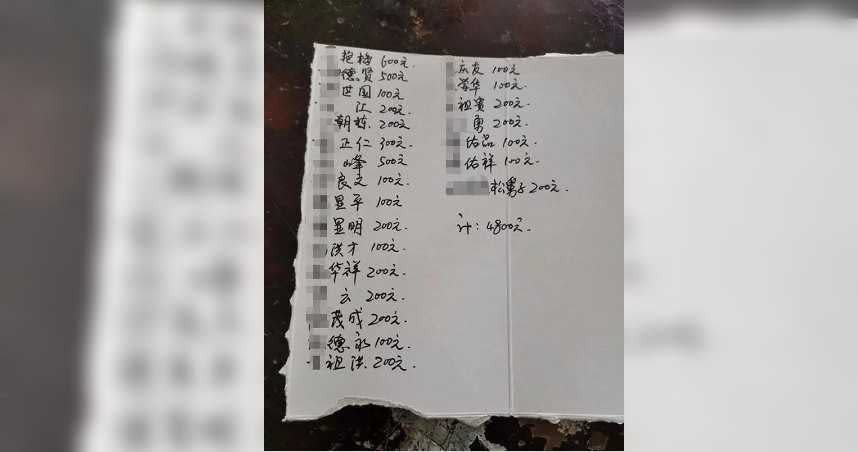 艳梅 600元.
德贤 500元
世国 100元
江 200元.
朝栋 200元
正仁 300元.
峰 500元
良文 100元.
显平 100元
显明 200元.
洪才 100元.
华祥 200元.
云 200元.
茂成 200元.
德永 100元.
祖洪 200元.
庆友 100元
荣华 100元.
祖宾 200元.
勇 200元.
佑品 100元.
佑祥 100元.
松 200元.
计: 4800元.